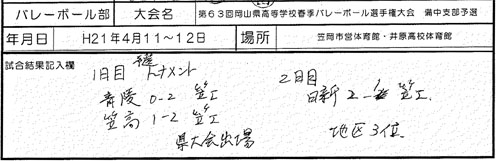 バレーボール部 大会名 第63回岡山県高等学校春季バレーボール選手権大会 備中支部予選
年月日 H21年4月11~12日 場所 笠岡市営体育館・井原高校体育館
試合結果記入欄
1日目 予選トーナメント
青陵 0-2 笠工
笠高 1-2 笠工
県大会出場
2日目
日新 2-1 笠工.
地区3位.